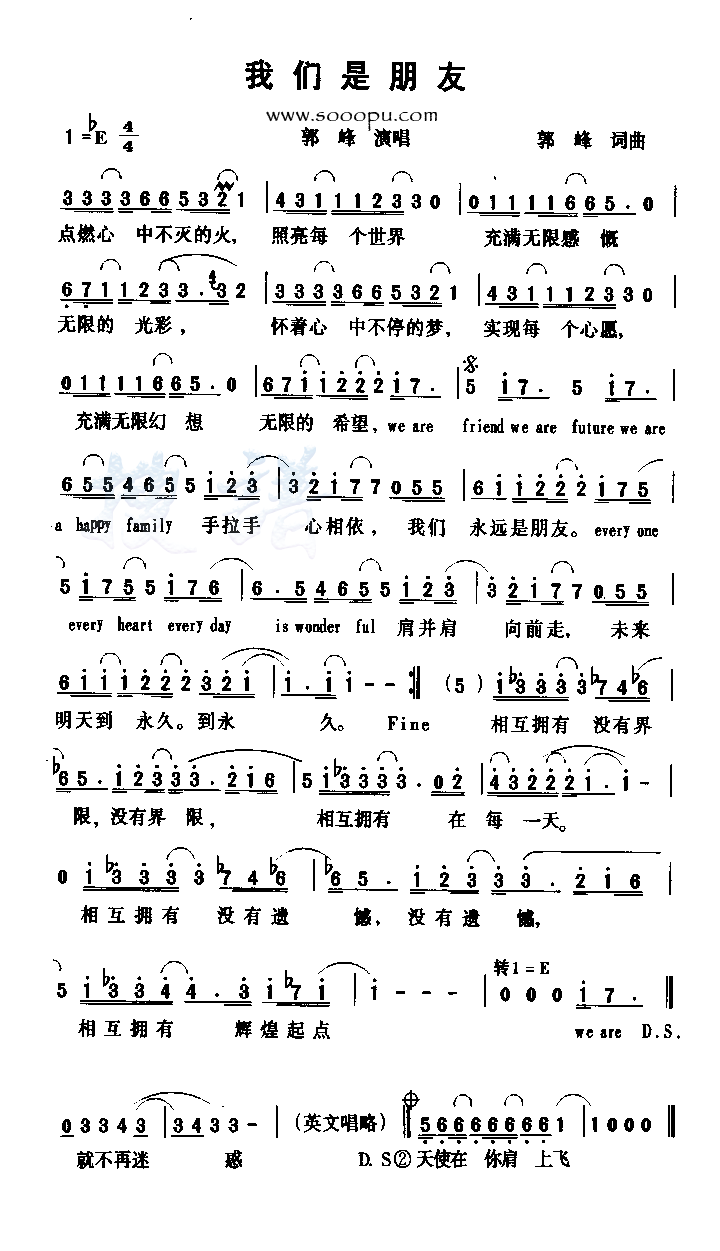 我们是朋友
www.sooopu.com
1=♭E 4/4 郭峰 演唱 郭峰 词曲
3 3 3 3 6 6 5 3 2 1 | 4 3 1 1 1 2 3 3 0 | 0 1 1 1 1 6 6 5 . 0 |
点燃心 中不灭的火, 照亮每 个世界 充满无限感 慨
6 7 1 1 2 3 3 . 4 3 2 | 3 3 3 3 6 6 5 3 2 1 | 4 3 1 1 1 2 3 3 0 |
无限的 光彩, 怀着心 中不停的梦, 实现每 个心愿,
0 1 1 1 1 6 6 5 . 0 | 6 7 1 1 2 2 2 1 7 . | 5 1 7 . 5 1 7 . |
充满无限幻 想 无限的 希望, we are friend we are future we are
6 5 5 4 6 5 5 1 2 3 | 3 2 1 7 7 0 5 5 | 6 1 1 2 2 2 1 7 5 |
a happy family 手拉手 心相依, 我们 永远是朋友。every one
5 1 7 5 5 1 7 6 | 6 . 5 4 6 5 5 1 2 3 | 3 2 1 7 7 0 5 5 |
every heart every day is wonder ful 肩并肩 向前走, 未来
6 1 1 1 2 2 2 3 2 1 | 1 . 1 1 - - :‖ (5) 1 ♭3 3 3 3 ♭7 4 ♭6 |
明天到 永久。到永 久。 Fine 相互拥有 没有界
♭6 5 . 1 2 3 3 3 . 2 1 6 | 5 1 ♭3 3 3 3 . 0 2 | 4 3 2 2 2 1 . 1 - |
限, 没有界 限, 相互拥有 在 每 一天。
0 1 ♭3 3 3 3 ♭7 4 6 | ♭6 5 . 1 2 3 3 3 . 2 1 6 |
相互拥有 没有遗 憾, 没有遗 憾,
转1=E
5 1 ♭3 3 4 4 . 3 1 ♭7 1 | 1 - - - | 0 0 0 1 7 . ‖
相互拥有 辉煌起点 we are D.S.
0 3 3 4 3 | 3 4 3 3 - (英文唱略) ‖ 5 6 6 6 6 6 6 6 1 | 1 0 0 0 ‖
就不再迷 惑 D.S② 天使在 你肩 上飞